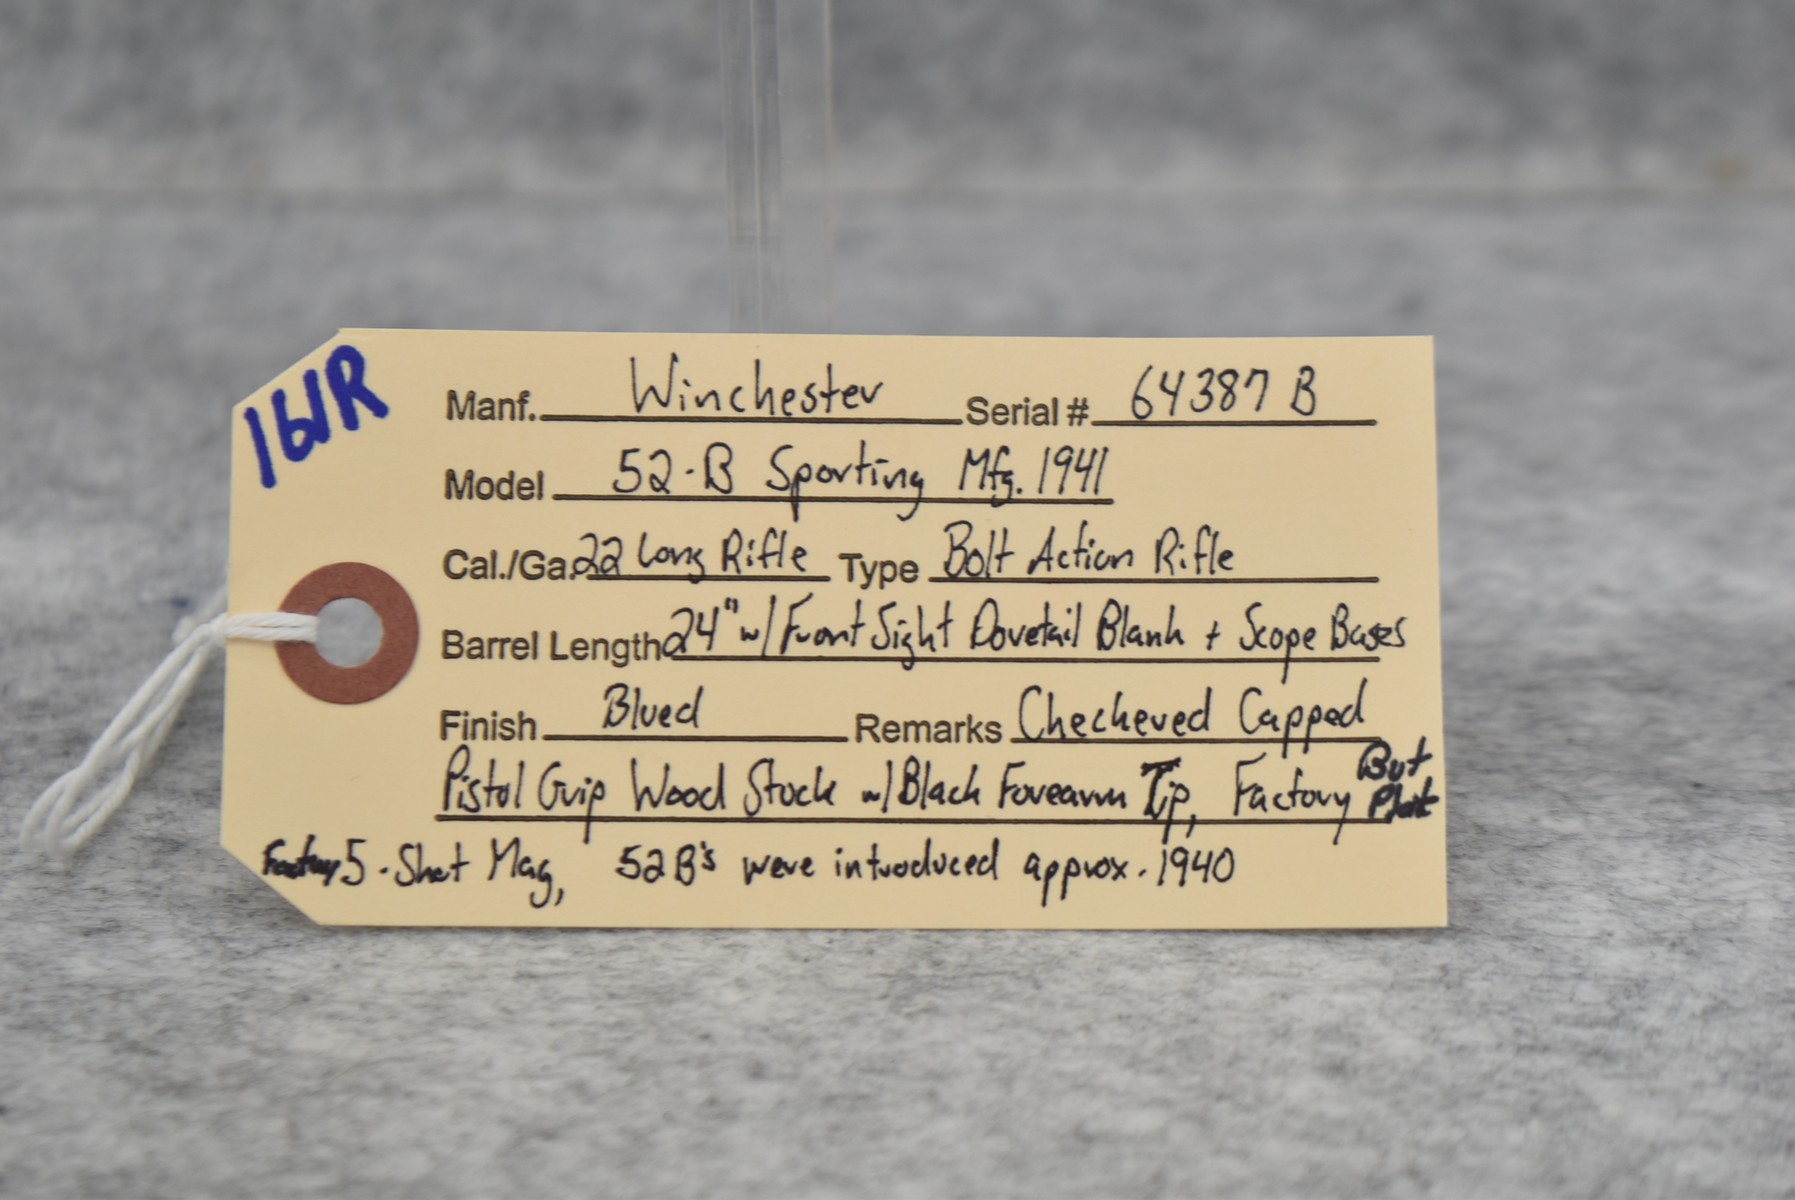 161R
Manf. Winchester Serial # 64387 B
Model 52-B Sporting Mfg. 1941
Cal./Ga. 22 Long Rifle Type Bolt Action Rifle
Barrel Length 24" w/ Front Sight Dovetail Blank + Scope Bases
Finish Blued Remarks Checkered Capped
Pistol Grip Wood Stock w/ Black Forearm Tip, Factory But Plate
Factory 5-Shot Mag, 52B's were introduced approx. 1940